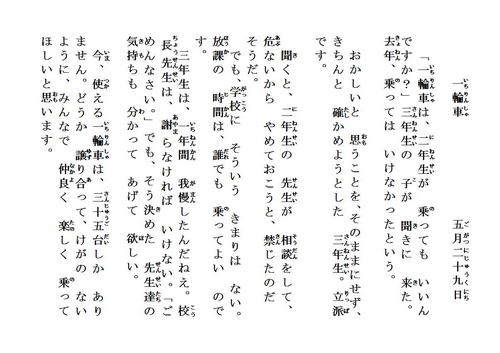 一輪車　五月二十九日
「一輪車は、二年生が 乗っても いいん
ですか?」三年生の 子が 聞きに 来た。
去年、乗っては いけなかったという。
おかしいと 思うことを、そのままにせず、
きちんと 確かめようとした 三年生。立派
です。
聞くと、二年生の 先生が 相談をして、
危ないから やめておこうと、禁じたのだ
そうだ。
でも、学校に そういう きまりは ない。
放課の 時間は、誰でも 乗ってよい ので
す。
三年生は、一年間 我慢したんだねえ。校
長先生は、謝らなければ いけない。「ご
めんなさい。」でも、そう決めた 先生達の
気持ちも 分かって あげて 欲しい。
今、使える一輪車は、三十五台しか あり
ません。どうか 譲り合って、けがの ない
ように、みんなで 仲良く 楽しく 乗って
ほしいと思います。